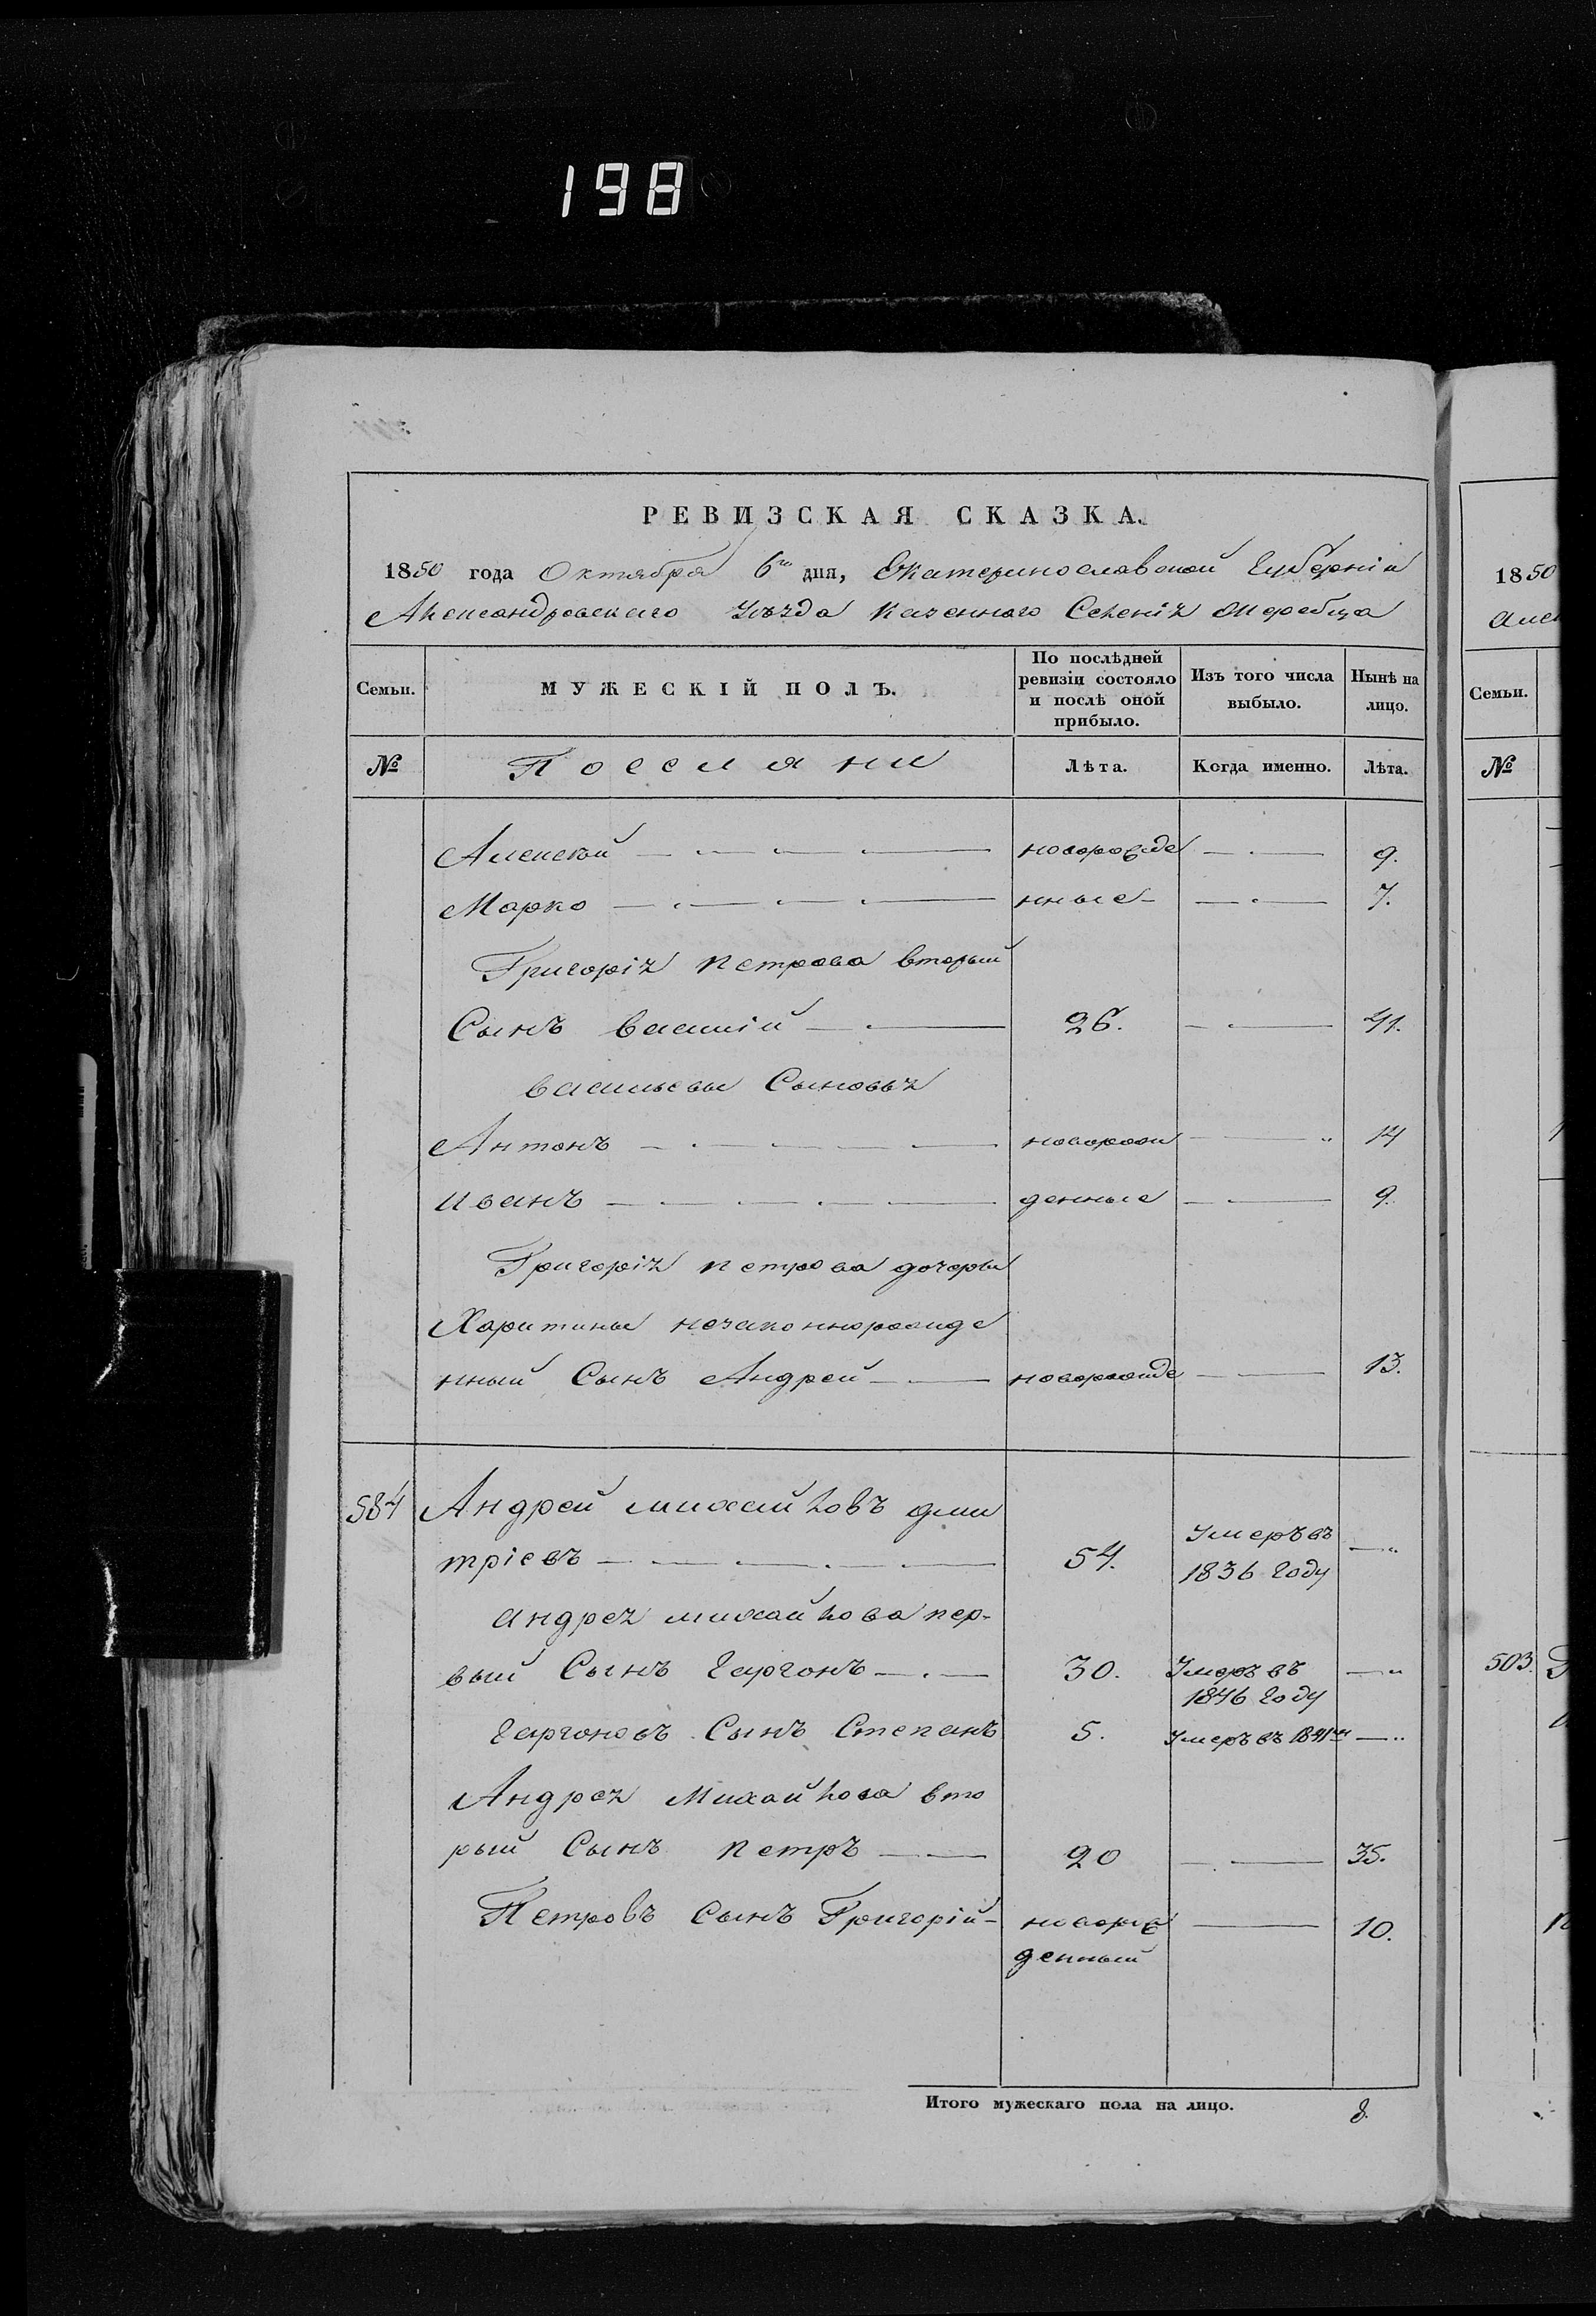 198
РЕВИЗСКАЯ СКАЗКА.
1850 года Октября 6го дня, Екатеринославской Губерніи
Александровскаго Уѣзда Казенного Селенія Жеребца
Семьи.
МУЖЕСКІЙ ПОЛЪ.
По послѣдней ревизіи состояло и послѣ оной прибыло.
Изъ того числа выбыло.
Нынѣ на лицо.
№ Поселяни Лѣта. Когда именно. Лѣта.
Алексѣй новорожде 9.
Марко нные 7.
Григорія Петрова вторый
Сынъ Василій 26. 41.
Васильевы Сыновья
Антонъ новорож 14
Иванъ денные 9.
Григорія Петрова дочеры
Харитины незаконнорожде
нный Сынъ Андрей новорожде 13.
584 Андрей Михайловъ Дми
тріевъ 54. Умеръ въ 1836 Году
Андрея Михайлова пер-
вый Сынъ Гаргонъ 30. Умеръ въ 1846 Году
Гаргоновъ Сынъ Степанъ 5. Умеръ въ 1841
Андрея Михайлова вто
рый Сынъ Петръ 20 35.
Петровъ Сынъ Григорій новорож 10.
денный
Итого мужескаго пола на лицо. 8.
1850
Алек
Семьи.
№
503.